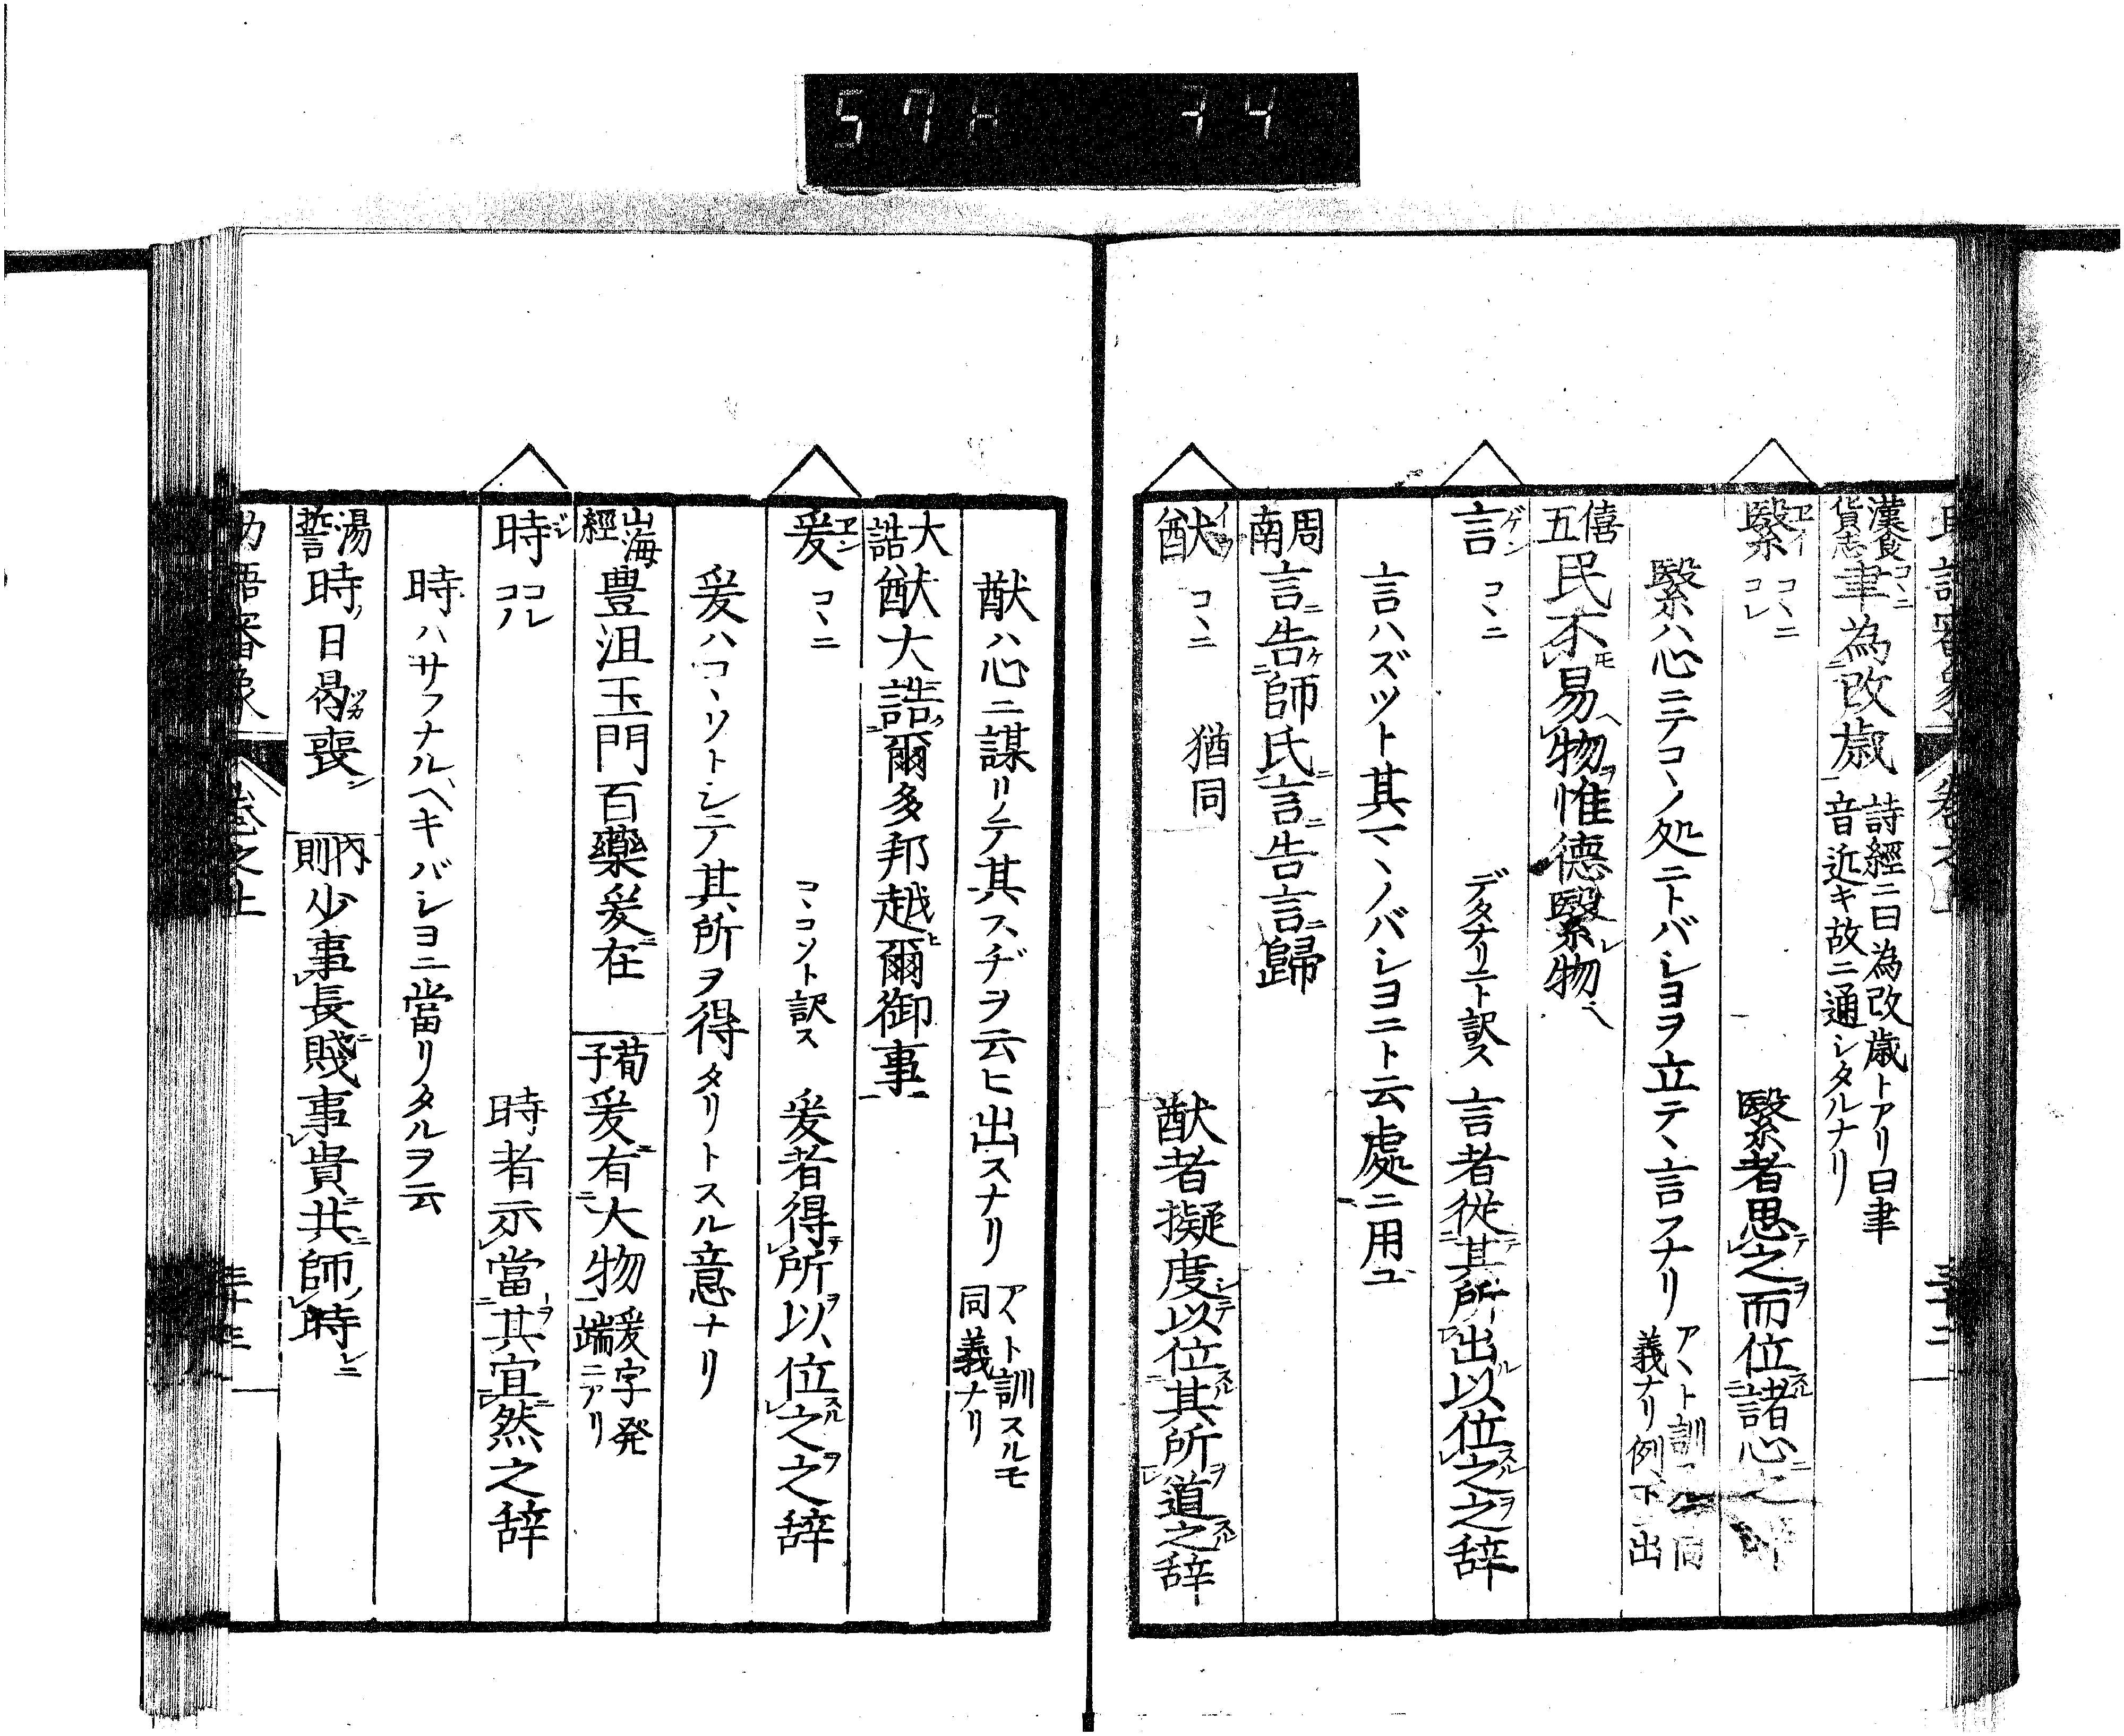 57H 34
助語審象 卷之上 三十二
漢食貨志 聿為改歳 詩經ニ曰為改歳トアリ曰聿音近キ故ニ通シタルナリ
繄 コヽニ コレ 繄者思之而位諸心之辞
繄ハ心ニテコヽノ処ニトバシヨヲ立テヽ言フナリ アヽト訓スル同義ナリ例下ニ出
僖五 民不易物惟德繄物
言 ゲン コヽニ デタナリニト訳ス 言者從其所出以位之之辞
言ハズツト其マヽノバシヨニト云處ニ用ユ
周南 言告師氏言告言歸
猷 イウ コヽニ 猶同 猷者擬度以位其所道之辞
猷ハ心ニ謀リテ其スヂヲ云ヒ出スナリ アヽト訓スルモ同義ナリ
大誥 猷大誥爾多邦越爾御事
爰 エン コヽニ コヽコソト訳ス 爰者得所以位之之辞
爰ハコヽソトシテ其所ヲ得タリトスル意ナリ
山海經 豊沮玉門百藥爰在 荀子 爰有大物 爰字発端ニアリ
時 ジ ココ コレ 時者示當其宜然之辞
時ハサフナルベキバシヨニ當リタルヲ云
湯誓 時日曷喪 内則 少事長賤事貴共師時
助語審象 卷之上 三十三